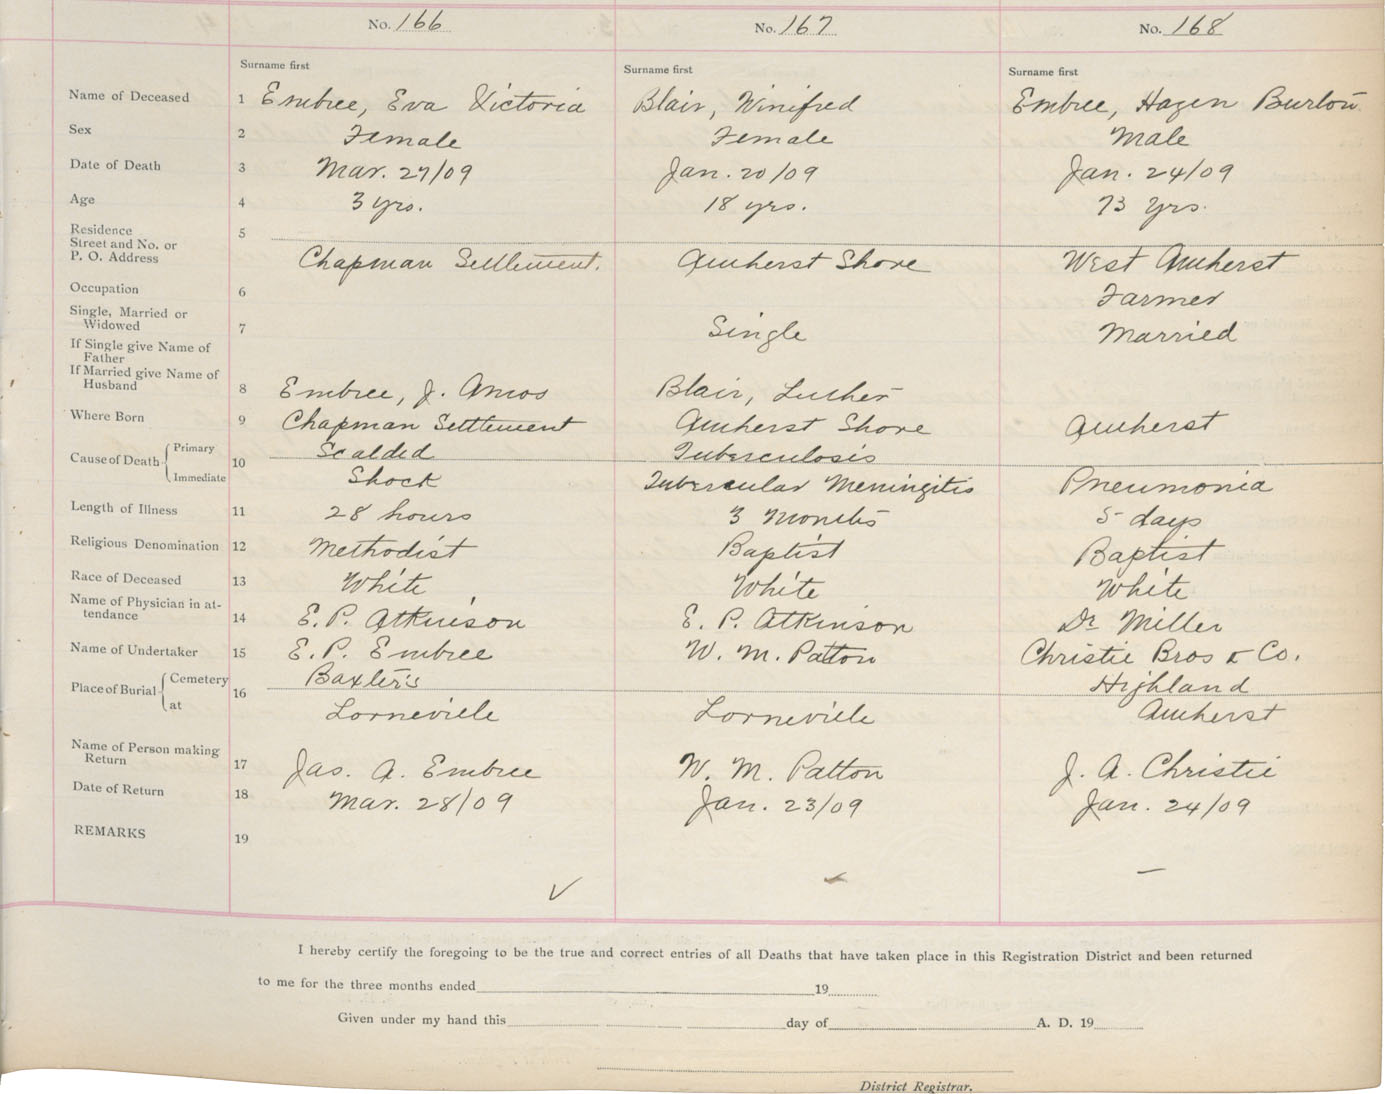 No. 166 No. 167 No. 168
Surname first Surname first Surname first
Name of Deceased 1 Embree, Eva Victoria Blair, Winifred Embree, Hazen Burton
Sex 2 Female Female Male
Date of Death 3 Mar. 27/09 Jan. 20/09 Jan. 24/09
Age 4 3 yrs. 18 yrs. 73 yrs.
Residence 5
Street and No. or
P. O. Address Chapman Settlement. Amherst Shore West Amherst
Occupation 6 Farmer
Single, Married or
Widowed 7 Single Married
If Single give Name of
Father
If Married give Name of
Husband 8 Embree, J. Amos Blair, Luther
Where Born 9 Chapman Settlement Amherst Shore Amherst
Cause of Death Primary 10 Scalded Tuberculosis
Immediate Shock Tubercular Meningitis Pneumonia
Length of Illness 11 28 hours 3 Months 5 days
Religious Denomination 12 Methodist Baptist Baptist
Race of Deceased 13 White White White
Name of Physician in at-
tendance 14 E. P. Atkinson E. P. Atkinson Dr Miller
Name of Undertaker 15 E. P. Embree W. M. Patton Christie Bros & Co.
Place of Burial Cemetery 16 Baxter's Highland
at Lorneville Lorneville Amherst
Name of Person making
Return 17 Jas. A. Embree W. M. Patton J. A. Christie
Date of Return 18 Mar. 28/09 Jan. 23/09 Jan. 24/09
REMARKS 19
I hereby certify the foregoing to be the true and correct entries of all Deaths that have taken place in this Registration District and been returned
to me for the three months ended 19
Given under my hand this day of A. D. 19
District Registrar.